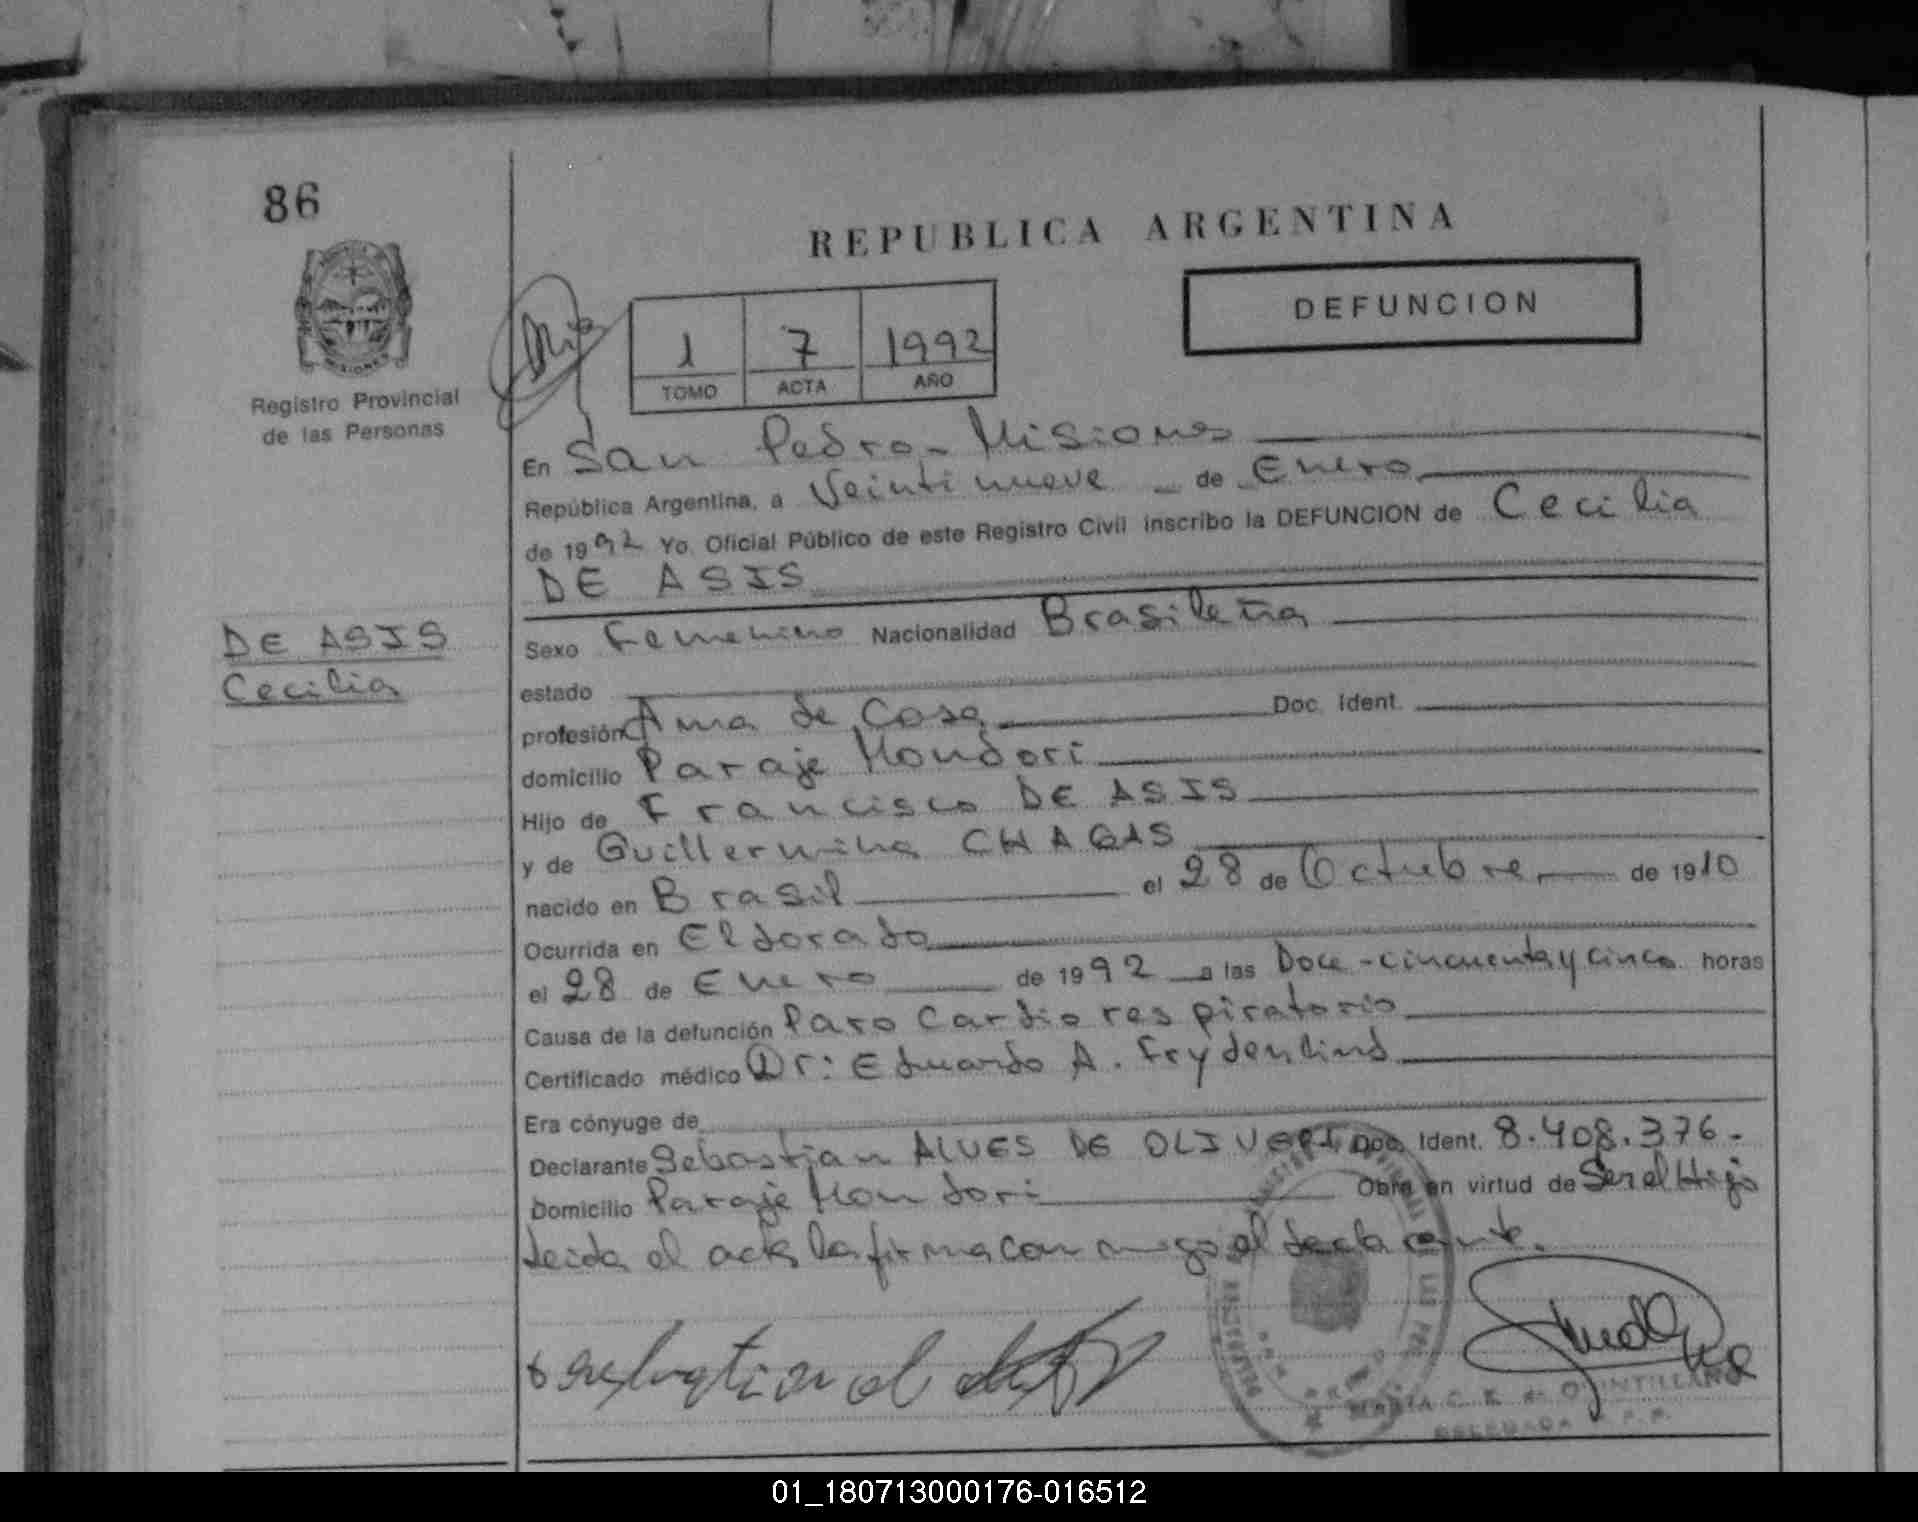 86
REPUBLICA ARGENTINA
DEFUNCION
1 7 1992
TOMO ACTA AÑO
MISIONES
Registro Provincial
de las Personas
En San Pedro - Misiones
República Argentina, a Veintinueve de Enero
de 1992 Yo. Oficial Público de este Registro Civil inscribo la DEFUNCION de Cecilia
DE ASIS
DE ASIS
Cecilia
Sexo Femenino Nacionalidad Brasileña
estado
profesión Ama de Casa Doc. Ident.
domicilio Paraje Mondori
Hijo de Francisco DE ASIS
y de Guillermina CHAGAS
nacido en Brasil el 28 de Octubre de 1910
Ocurrida en Eldorado
el 28 de Enero de 1992 a las Doce - cincuenta y cinco horas
Causa de la defunción Paro Cardio respiratorio
Certificado médico Dr: Eduardo A. Frydenlind
Era cónyuge de
Declarante Sebastian ALVES DE OLIVERI Doc. Ident. 8.408.376.-
Domicilio Paraje Mondori Obra en virtud de Ser el Hijo
Leida el acta la firma con migo el declarante.
MARIA C. K. de QUINTILLAN
DELEGADA R. P. P.
01_180713000176-016512